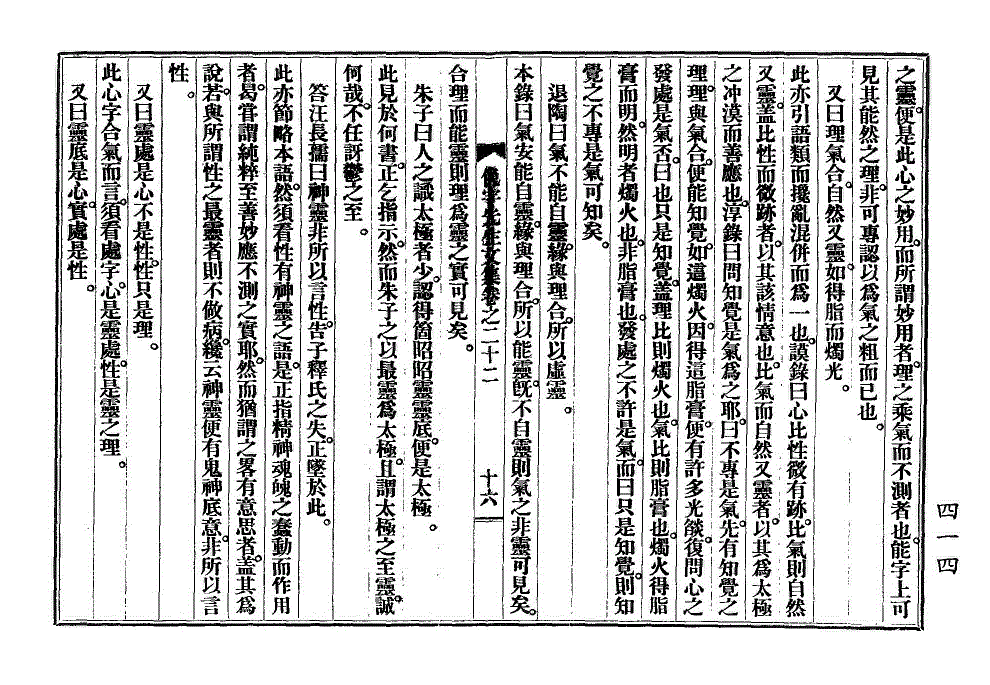 之靈便是此心之妙用而所謂妙用者理之乘氣而不測者也能字上可
見其能然之理非可專認以爲氣之粗而已也。
又曰理氣合自然又靈如得脂而燭光。
此亦引語類而攙亂混倂而爲一也謨錄曰心比性微有跡比氣則自然
又靈蓋比性而微跡者以其該情意也比氣而自然又靈者以其爲太極
之冲漠而善應也淳錄曰問知覺是氣爲之耶曰不專是氣先有知覺之
理理與氣合便能知覺如這燭火因得這脂膏便有許多光燄復問心之
發處是氣否曰也只是知覺蓋理比則燭火也氣比則脂膏也燭火得脂
膏而明然明者燭火也非脂膏也發處之不許是氣而曰只是知覺則知
覺之不專是氣可知矣。
退陶曰氣不能自靈緣與理合所以虛靈。
本錄曰氣安能自靈緣與理合所以能靈旣不自靈則氣之非靈可見矣。
先生文集卷之二十二
十六
合理而能靈則理爲靈之實可見矣。
朱子曰人之識太極者少認得箇昭昭靈靈底便是太極。
此見於何書正乞指示然而朱子之以最靈爲太極且謂太極之至靈誠
何哉不任訝鬱之至。
答汪長孺曰神靈非所以言性告子釋氏之失正墜於此。
此亦節略本語然須看性有神靈之語是正指精神魂魄之蠢動而作用
者曷嘗謂純粹至善妙應不測之實耶然而猶謂之畧有意思者蓋其爲
說若與所謂性之最靈者則不做病纔云神靈便有鬼神底意非所以言
性。
又曰靈處是心不是性性只是理。
此心字合氣而言須看處字心是靈處性是靈之理。
又曰靈底是心實處是性。
四一四